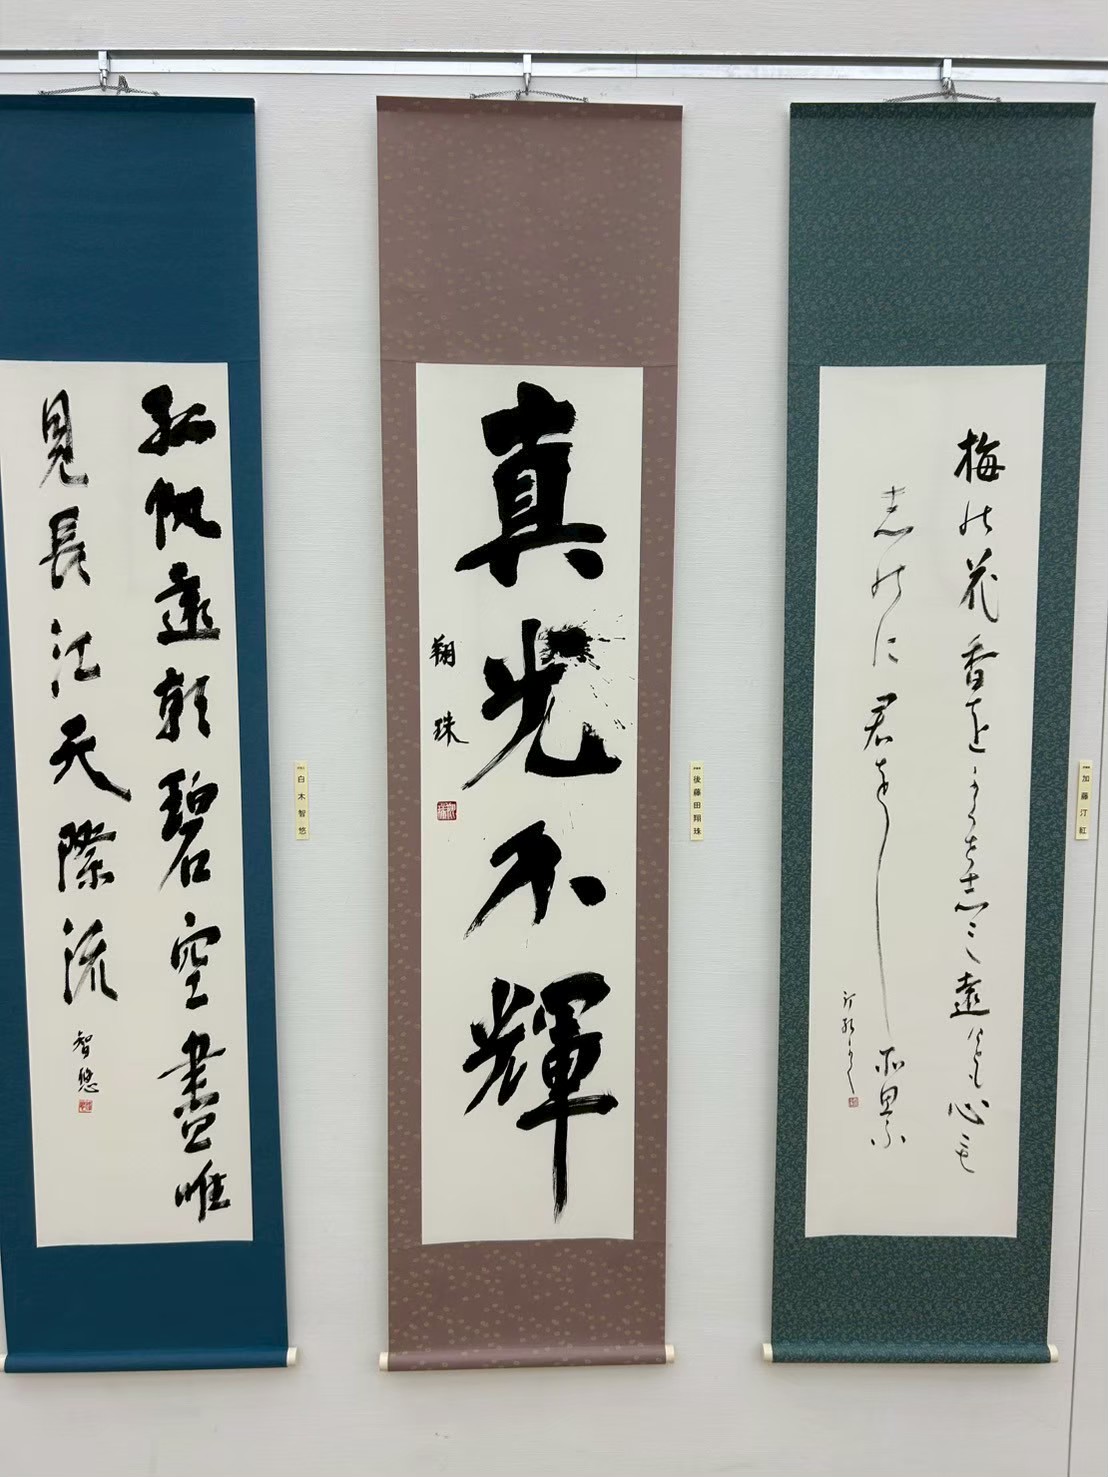 梅能花香をかくは志ミ遠けども心毛
志能に君をし
汀紅かく
加藤汀紅
真光不輝
翔珠
後藤田翔珠
孤帆遠影碧空盡唯
見長江天際流
智悠
白木智悠